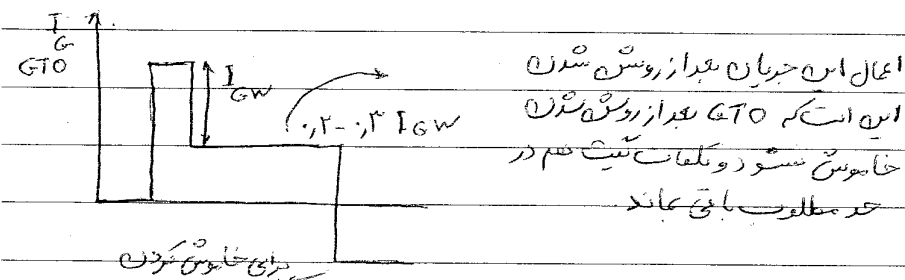 I_G
GTO
I_GW
۰٫۲-۰٫۳ I_GW
اعمال این جریان بعد از روشن شدن
این است که GTO بعد از روشن شدن
خاموش نشود و تلفات گیت هم در
حد مطلوب باقی بماند
برای خاموش کردن